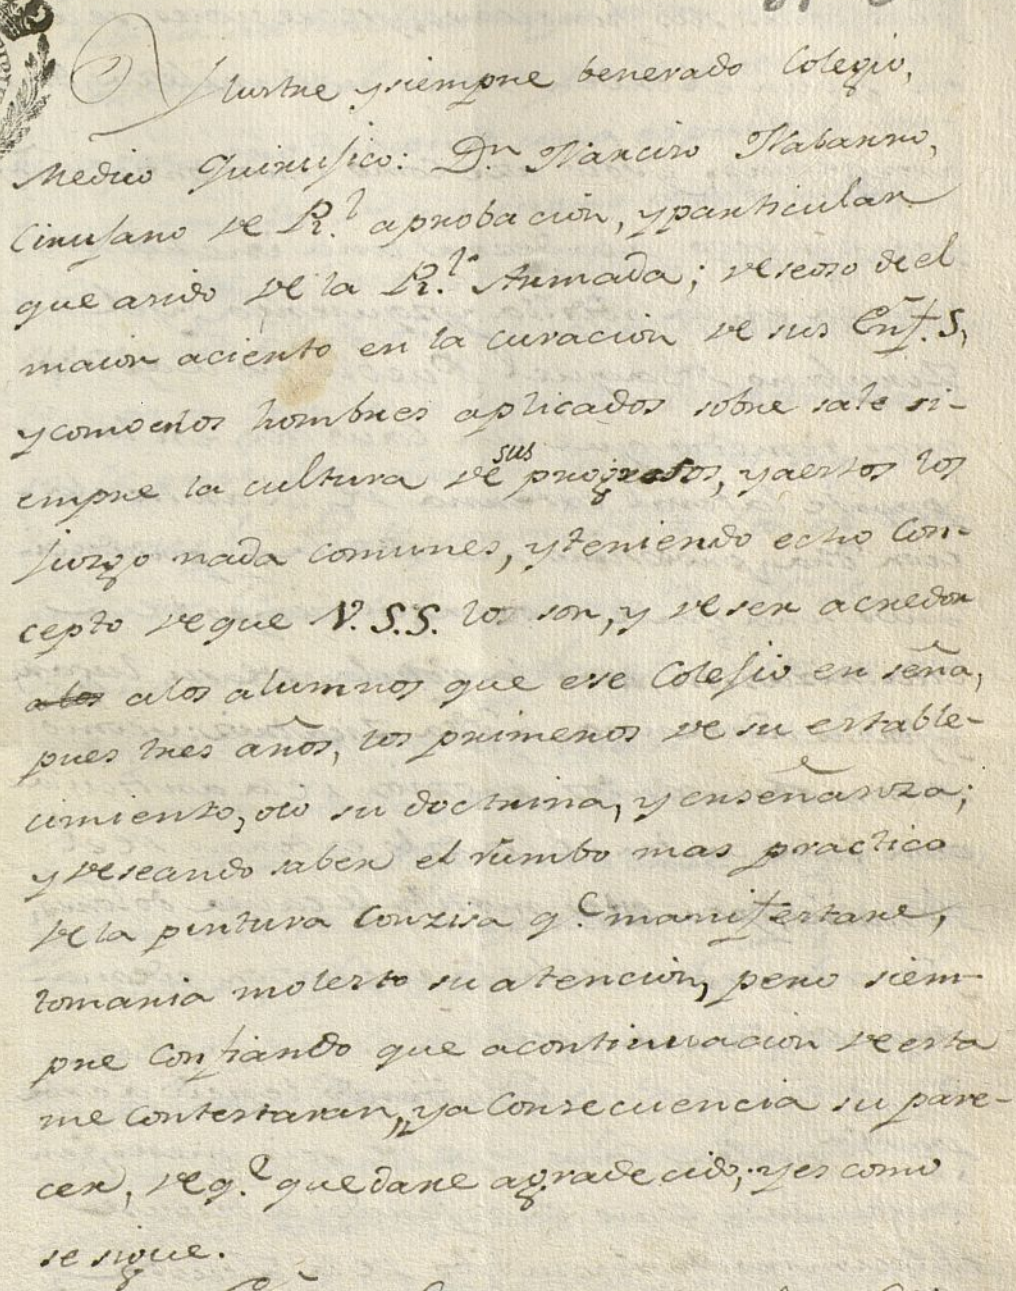 Ylustre y siempre benerado Colegio,
Medico Quirurjico: Dn Narciso Nabarro,
Cirujano de Rl. aprobacion, y particular
que asido de la Rl. Armada; deseoso de el
maior acierto en la curacion de sus Enf.s,
y como en los hombres aplicados sobre sale si-
empre la cultura de sus progresos, y aestos los
juzgo nada comunes, y teniendo echo Con-
cepto de que V.S.S. los son, y de ser acredor
a los alos alumnos que ese Colejio en seña,
pues tres años, los primeros de su estable-
cimiento, oio su doctrina, y enseñanza;
y deseando saber el rumbo mas practico
de la pintura Conzisa q.e manifestare,
tomaria molesto su atencion, pero siem-
pre Confiando que acontinuacion de esta
me Contestaran, ya Consecuencia su pare-
cer, de q.e quedare agradecido; y es como
se sigue.